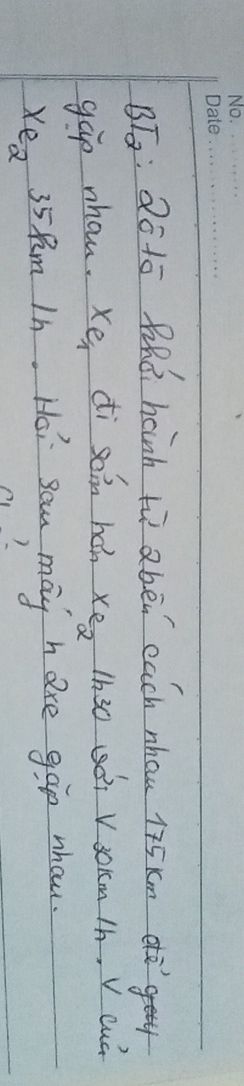 No. ..........
Date ..................
BT2: 2ôtô khởi hành từ 2bến cách nhau 175km để
gặp nhau. Xe1 đi sớm hơn xe2 1h30 với V 30km/h, V của
xe2 35km/h. Hỏi sau mấy h 2xe gặp nhau.